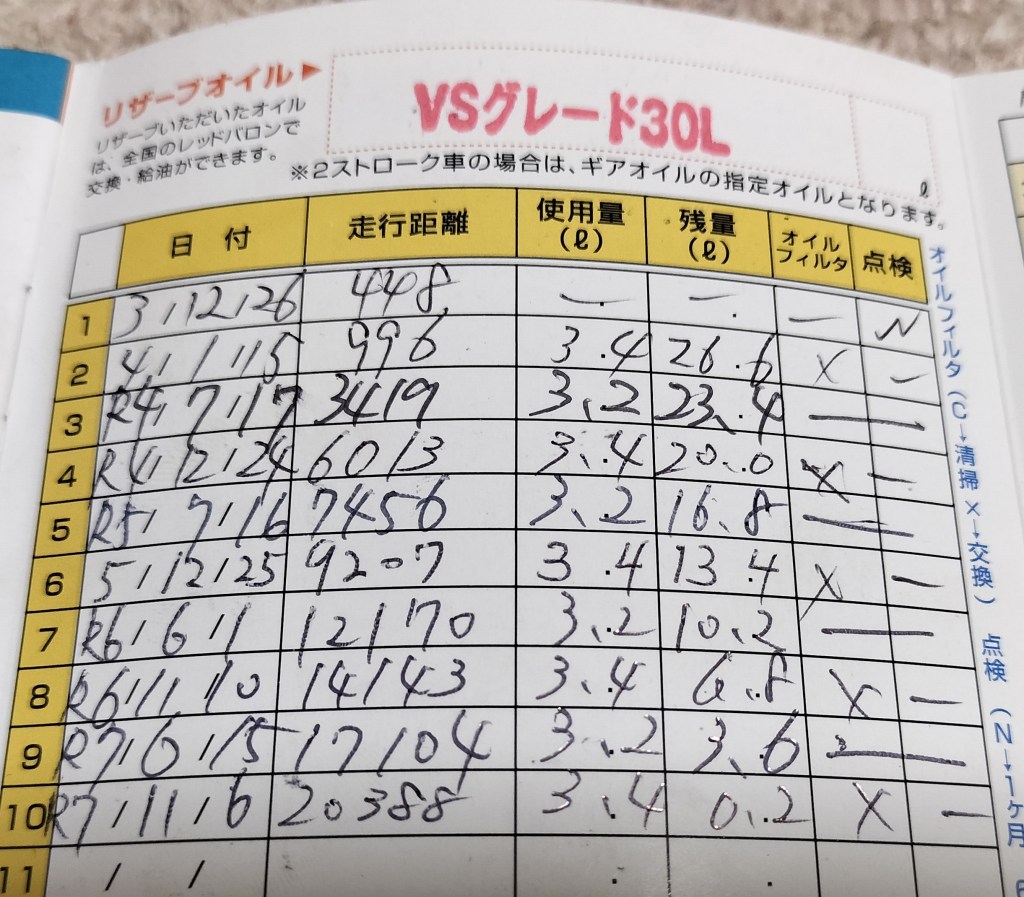 リザーブオイル▶
リザーブいただいたオイル
は、全国のレッドバロンで
交換・給油ができます。
VSグレード30L
ℓ
※2ストローク車の場合は、ギアオイルの指定オイルとなります。
日 付 走行距離 使用量(ℓ) 残量(ℓ) オイルフィルタ 点検
1 3/12/26 448 — . — . — N
2 4/1/15 996 3.4 26.6 X —
3 R4/7/17 3419 3.2 23.4 —
4 R4/12/24 6013 3.4 20.0 X —
5 R5/7/16 7456 3.2 16.8 —
6 5/12/25 9207 3.4 13.4 X —
7 R6/6/1 12170 3.2 10.2 —
8 R6/11/10 14143 3.4 6.8 X —
9 R7/6/15 17104 3.2 3.6 —
10 R7/11/6 20388 3.4 0.2 X —
11 / / . .
オイルフィルタ（C→清掃 ×→交換） 点検（N→1ヶ月